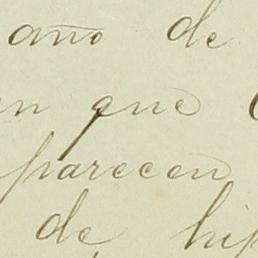 año de
que
parecen
de